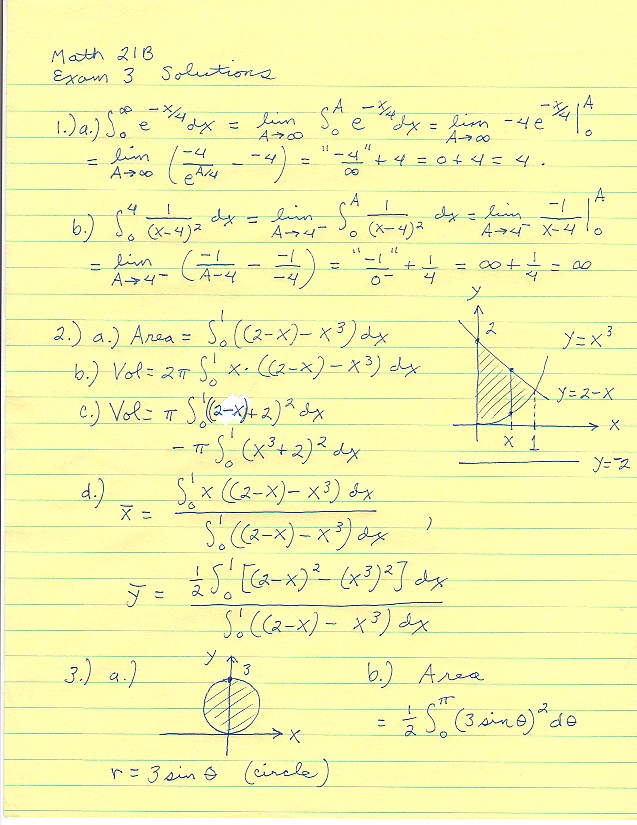 Math 21B
Exam 3 Solutions
1.) a.) ∫₀^∞ e^(-x/4) dx = lim_{A→∞} ∫₀^A e^(-x/4) dx = lim_{A→∞} -4e^(-x/4) |₀^A
= lim_{A→∞} (-4/e^(A/4) - -4) = "-4/∞" + 4 = 0 + 4 = 4.
b.) ∫₀^4 1/(x-4)² dx = lim_{A→4⁻} ∫₀^A 1/(x-4)² dx = lim_{A→4⁻} -1/(x-4) |₀^A
= lim_{A→4⁻} (-1/(A-4) - -1/-4) = "-1/0⁻" + 1/4 = ∞ + 1/4 = ∞
2.) a.) Area = ∫₀^1 ((2-x) - x³) dx
b.) Vol = 2π ∫₀^1 x · ((2-x) - x³) dx
c.) Vol = π ∫₀^1 ((2-x)+2)² dx
- π ∫₀^1 (x³+2)² dx
y
2
y = x³
y = 2-x
x
x 1
y = -2
d.) x̄ = ∫₀^1 x((2-x) - x³) dx / ∫₀^1 ((2-x) - x³) dx ,
ȳ = 1/2 ∫₀^1 [(2-x)² - (x³)²] dx / ∫₀^1 ((2-x) - x³) dx
3.) a.)
y
3
x
r = 3 sin θ (circle)
b.) Area
= 1/2 ∫₀^π (3 sin θ)² dθ